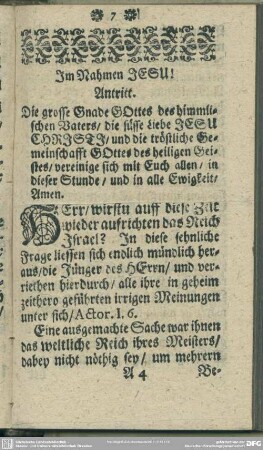 7
Im Nahmen JESU!
Antritt.
Die grosse Gnade GOttes des himmli-
schen Vaters/ die süsse Liebe JESU
CHRISTI/ und die tröstliche Ge-
meinschafft GOttes des heiligen Gei-
stes/ vereinige sich mit Euch allen/ in
dieser Stunde/ und in alle Ewigkeit/
Amen.
HErr/ wirstu auff diese Zeit
wieder aufrichten das Reich
Israel? In diese sehnliche
Frage liessen sich endlich mündlich her-
aus/ die Jünger des HErrn/ und ver-
riethen hierdurch/ alle ihre in geheim
zeithero geführten irrigen Meinungen
unter sich/ Actor. 1. 6.
Eine ausgemachte Sache war ihnen
das weltliche Reich ihres Meisters/
dabey nicht nöthig sey/ um mehrern
A 4
Be-